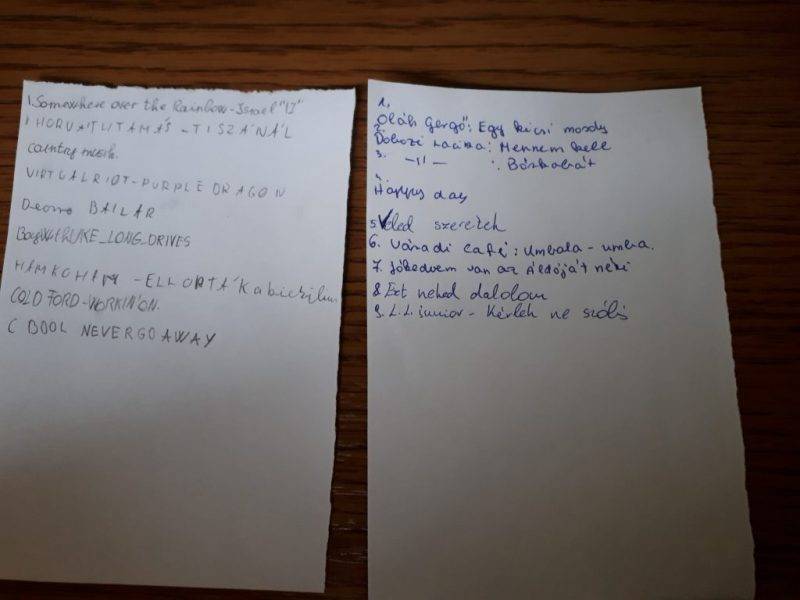 1. Somewhere over the Rainbow - Israel "IZ"
HORVÁTH TAMÁS - TISZÁNÁL
Country music.
VIRTUAL RIOT - PURPLE DRAGON
BAILAR
LUKE_LONG_DRIVES
- ELLOPTÁK a biciklim
COLD FORD - WORKIN'ON.
C BOOL NEVER GO AWAY
1.
Oláh Gergő: Egy kicsi mosoly
Bódozi Lacika: Mennem kell
3. -11- : Bőrkabát
Happy day
5. Veled szeretek
6. Váradi Café: Umbala - umba.
7. Jókedvem van az Áldóját néki
8. Ezt neked dalolom
9. L.L. junior - Kérlek ne szólj